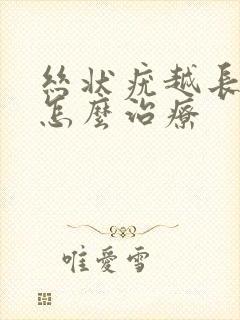 丝状疣越長
怎麼治療
唯愛雪